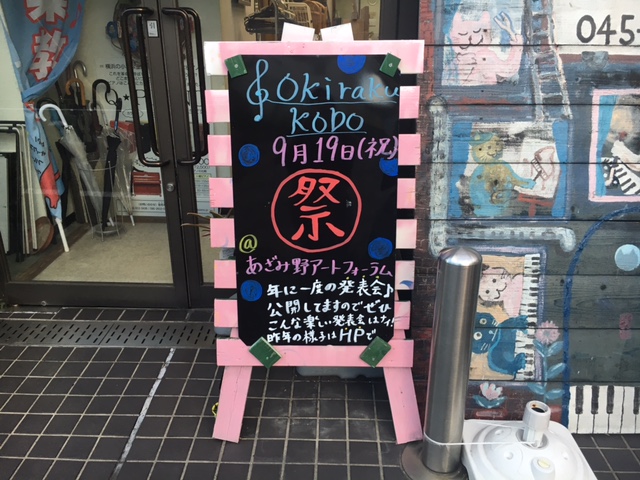 Okiraku
KOBO
9月19日(祝)
祭
@
あざみ野アートフォーラム
年に一度の発表会♪
公開してますのでぜひ
こんな楽しい発表会はナイ!
昨年の様子はHPで
045-